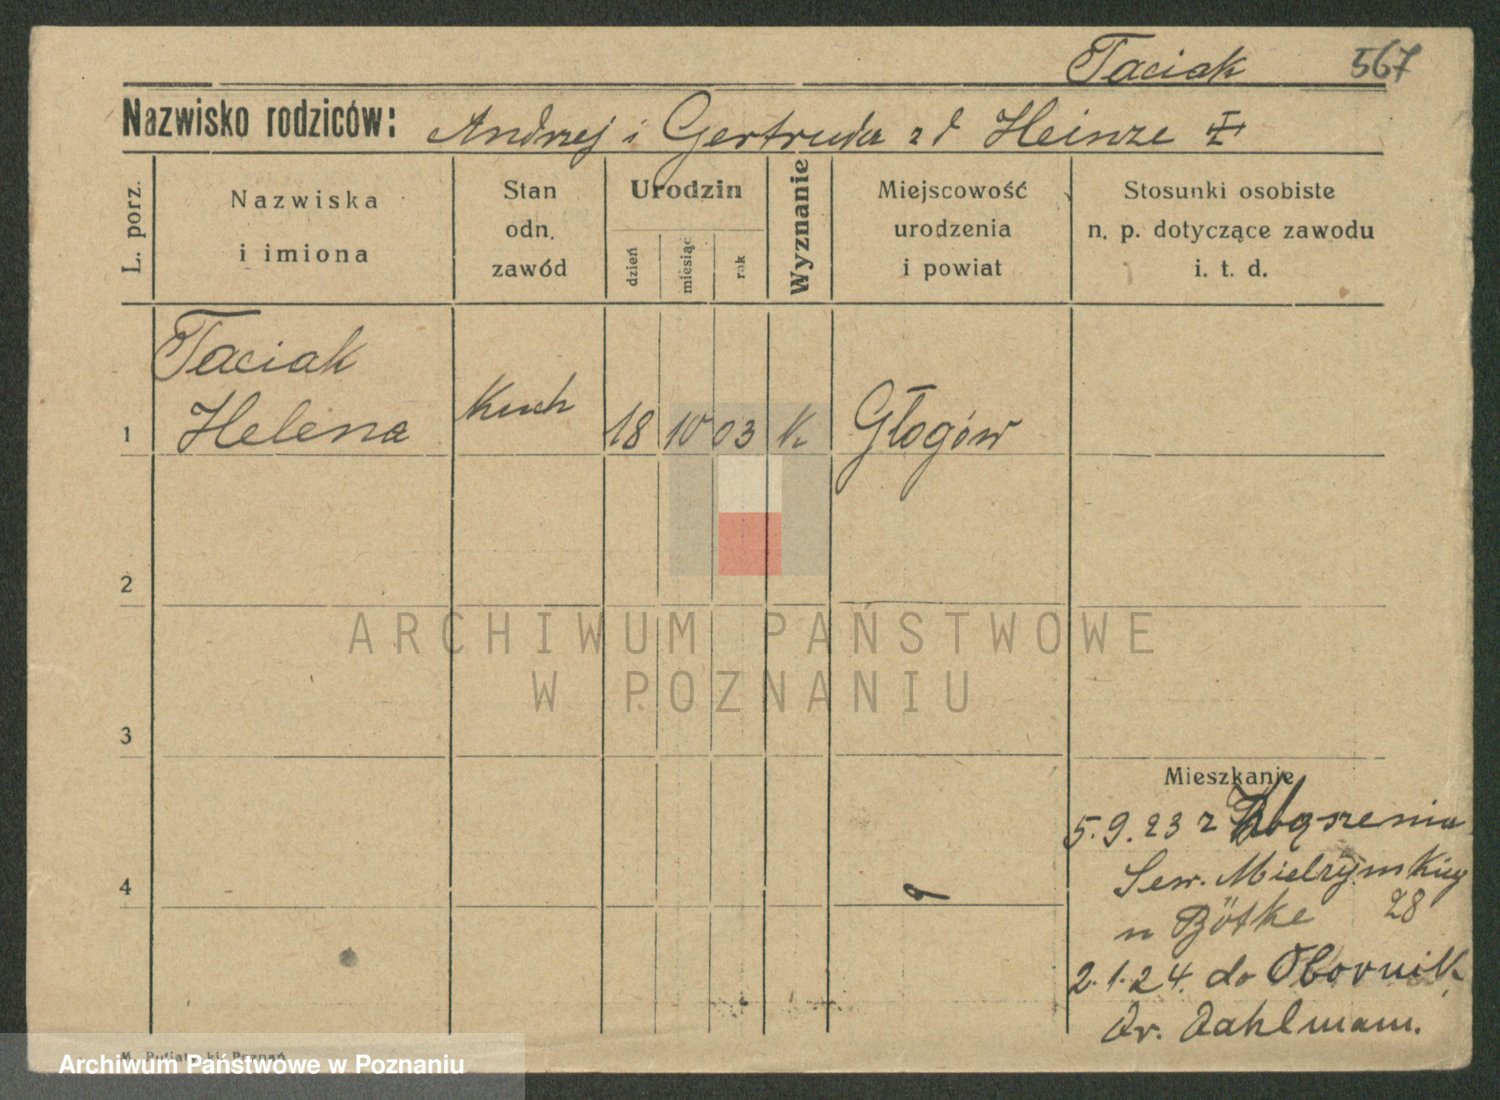 Taciak 567
Nazwisko rodziców: Andrzej i Gertruda zd Heinze
L. porz.
Nazwiska
i imiona
Stan
odn.
zawód
Urodzin
dzień
miesiąc
rok
Wyznanie
Miejscowość
urodzenia
i powiat
Stosunki osobiste
n. p. dotyczące zawodu
i. t. d.
Taciak
1 Helena Kuch 18 10 03 K Głogów
2
3
4
Mieszkanie
5.9.23 z
Sew. Mielżyńskiego
28
n Bötke
2.1.24. do Obornik
Dr. Dahlmann.
ARCHIWUM PAŃSTWOWE
W POZNANIU
Poznań
Archiwum Państwowe w Poznaniu